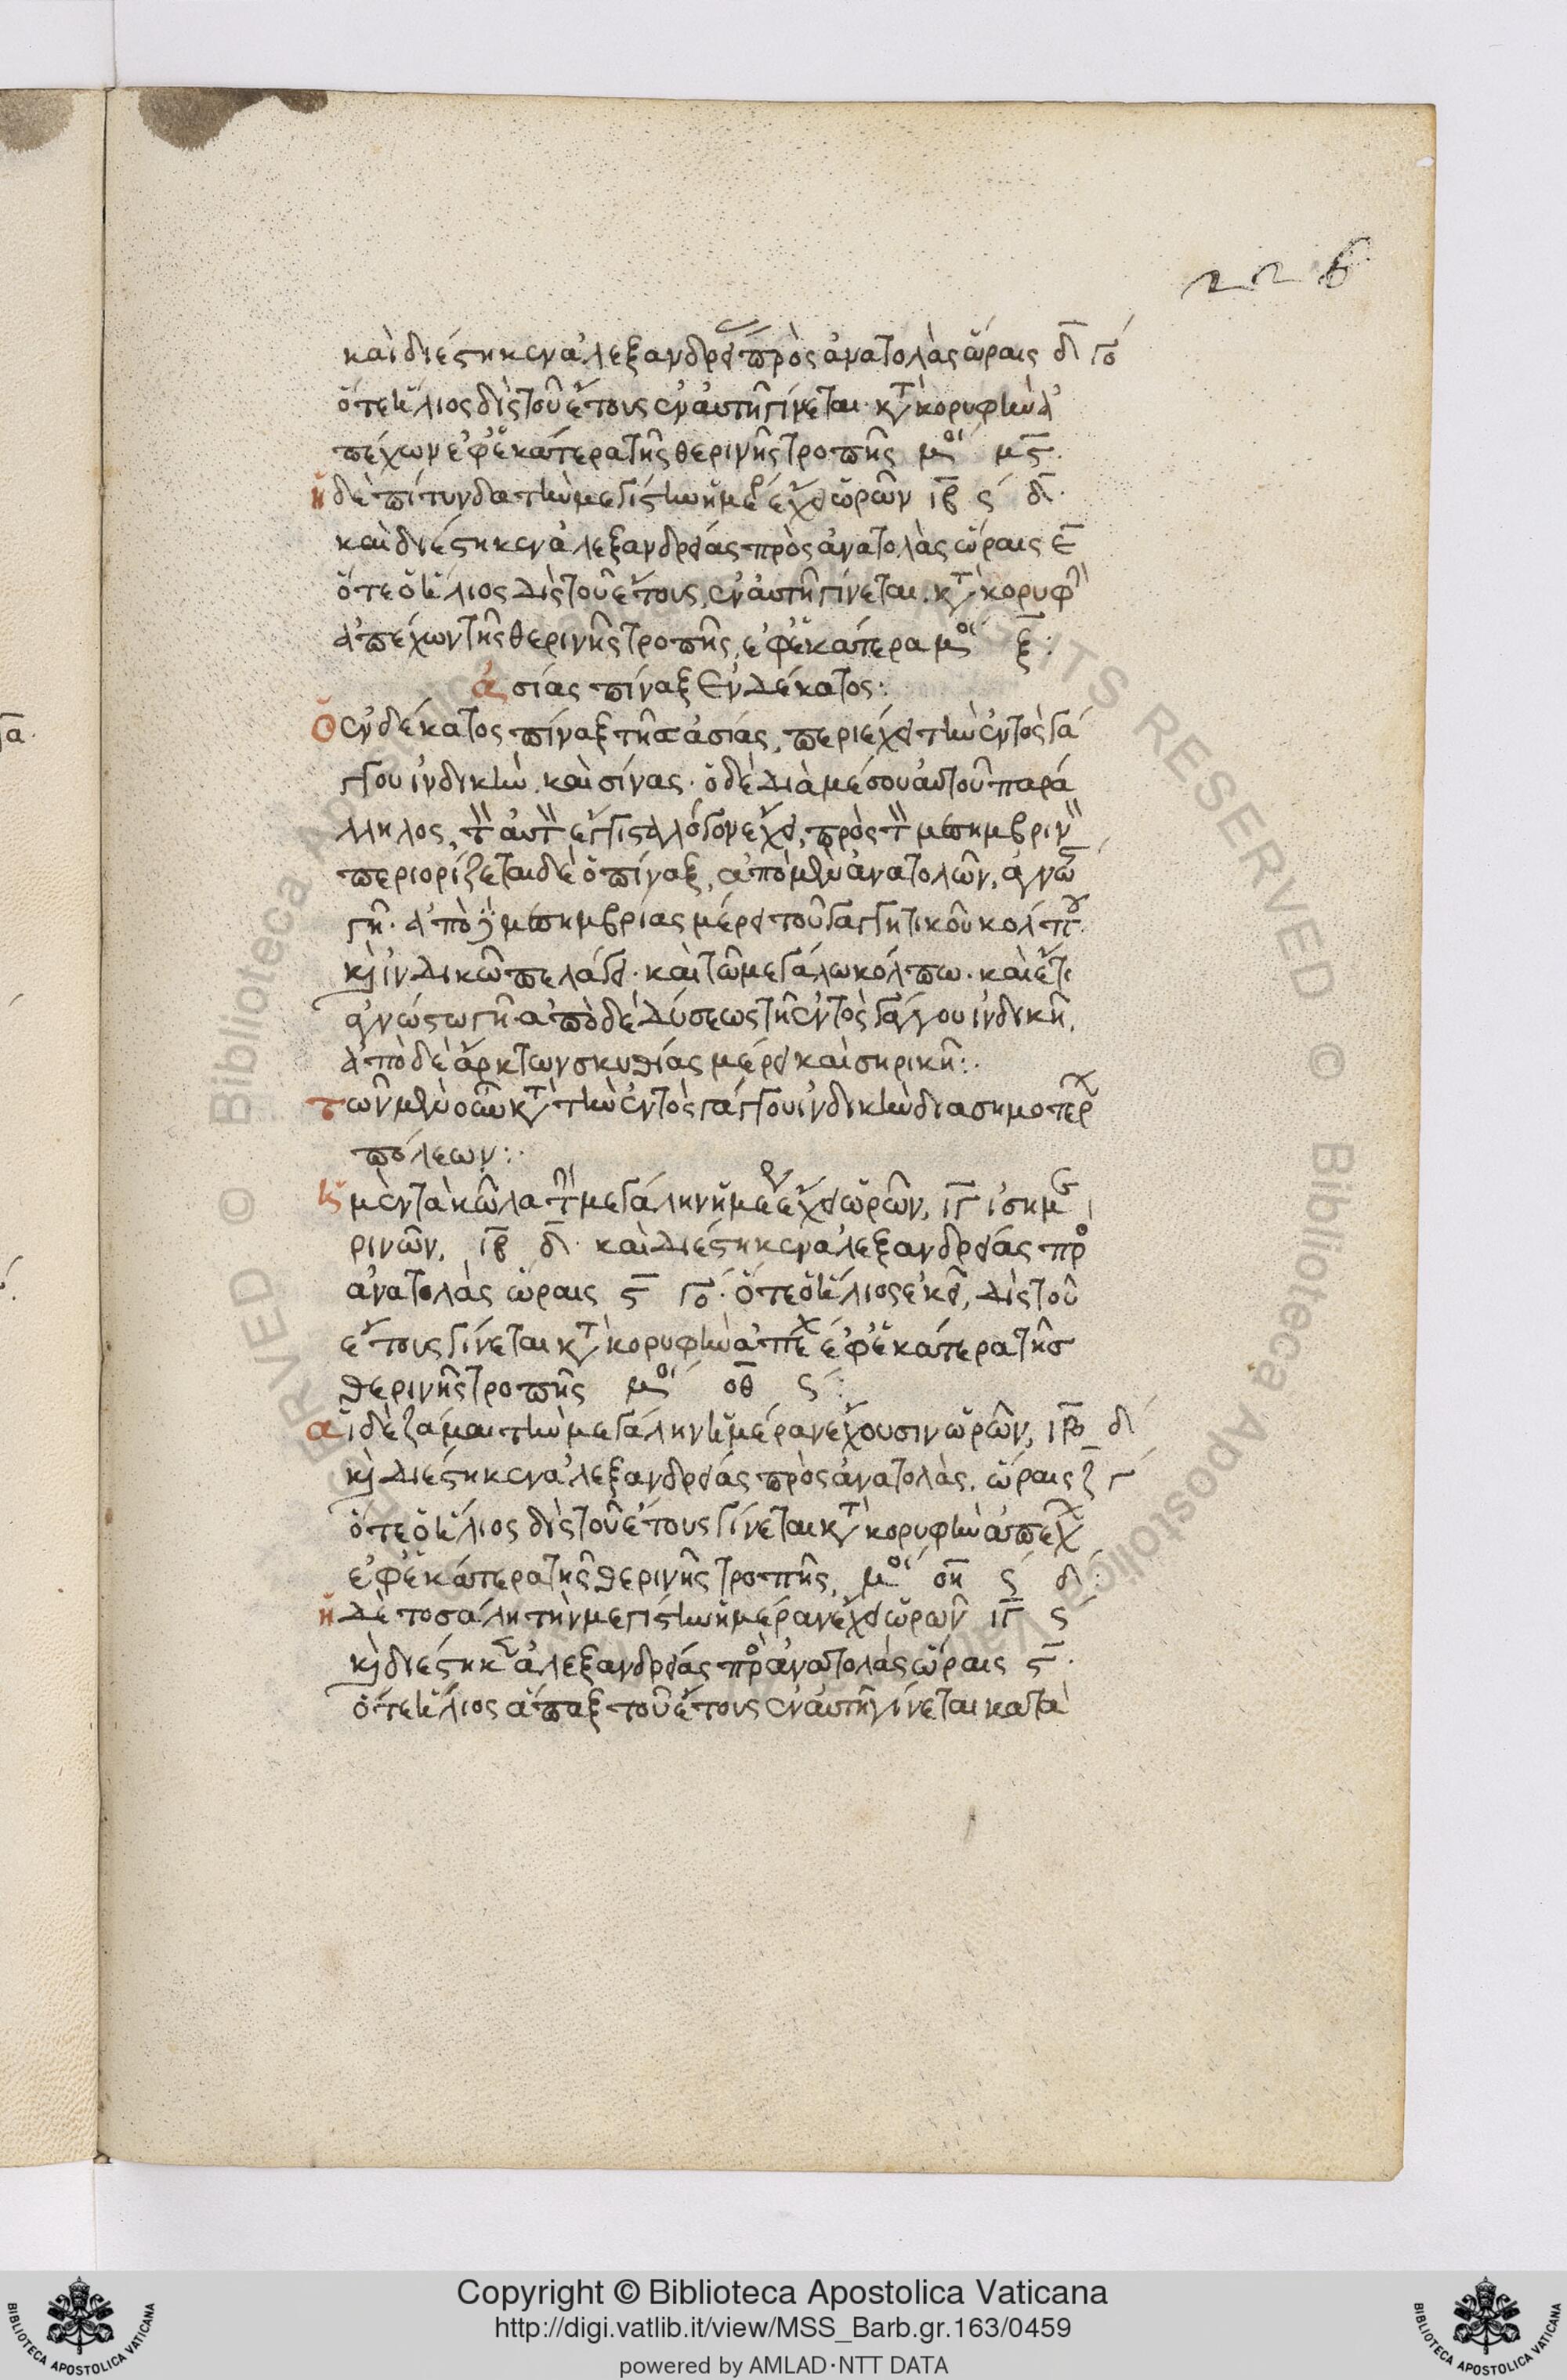 226
καὶ διέστηκεν ἀλεξανδρείας πρὸς ἀνατολὰς ὥραις δ̅ γο´
ὅτε ἥλιος δὶς τοῦ ἔτους ἐν αὐτῆ γίνεται κτ̀ κορυφὴν ἀ
πέχων ἐφ' ἑκάτερα τῆς θερινῆς τροπῆς μοί μϛ̅.
ἡ δὲ πίτυνδα τὴν μεγίστην ἡμέρ ἔχει ὡρῶν ιβ̅ ς´ δ̅.
καὶ διέστηκεν ἀλεξανδρείας πρὸς ἀνατολὰς ὥραις ε̅
ὅτε ὁ ἥλιος δὶς τοῦ ἔτους, ἐν αὐτῆ γίνεται. κτ̀ κορυφὴν
ἀπέχων τῆς θερινῆς τροπῆς, ἐφ' ἑκάτερα μοί ξ̅:
ἀσίας πίναξ ἑνδέκατος:
Ὁ ἑνδέκατος πίναξ τῆς ἀσίας, περιέχει τὴν ἐντὸς γά
γγου ἰνδικὴν. καὶ σίνας. ὁ δὲ διὰ μέσου αὐτοῦ παρά
λληλος, τὸν αὐτὸν ἔγγιστα λόγον ἔχει, πρὸς τὸν μεσημβρινὸν
περιορίζεται δὲ ὁ πίναξ, ἀπὸ μὲν ἀνατολῶν, ἀγνώστ
γῆ. ἀπὸ δὲ μεσημβρίας μέρει τοῦ γαγγητικοῦ κόλπου.
κὶ ἰνδικῶ πελάγει. καὶ τῶ μεγάλω κόλπω. καὶ ἔτι
ἀγνώστω γῆ ἀπὸ δὲ δύσεως τῆ ἐντὸς γάγγου ἰνδικῆ,
ἀπὸ δὲ ἄρκτων σκυθίας μέρει καὶ σηρικῆ:.
τῶν μὲν οὖν κτ̀ τὴν ἐντὸς γάγγου ἰνδικὴν διασημοτέρ
πόλεων:.
ἡ μὲν τάκωλα τὴν μεγάλην ἡμέρ ἔχει ὡρῶν, ιγ̅ ἰσημ
ρινῶν, ιβ̅ δ̅. καὶ διέστηκεν ἀλεξανδρείας πρὸ
ἀνατολὰς ὥραις ϛ̅ γο´. ὅτε ὁ ἥλιος ἐκεῖ, δὶς τοῦ
ἔτους γίνεται κτ̀ κορυφὴν ἀπέχ ἐφ' ἑκάτερα τῆς
θερινῆς τροπῆς μοί οθ̅ ς´:
αἱ δὲ ζάμαι τὴν μεγάλην ἡμέραν ἔχουσιν ὡρῶν, ιβ̅ δ´
κὶ διέστηκεν ἀλεξανδρείας πρὸς ἀνατολὰς. ὥραις ζ̅ γ´
ὅτε ὁ ἥλιος δὶς τοῦ ἔτους γίνεται κτ̀ κορυφὴν ἀπέχ
ἐφ' ἑκάτερα τῆς θερινῆς τροπῆς, μοί οη̅ ς´ δ´:
ἡ δὲ τοσάλη τὴν μεγίστην ἡμέραν ἔχει ὡρῶν ιγ̅ ς´
κὶ διέστηκεν ἀλεξανδρείας πρὸ ἀνατολὰς ὥραις ϛ̅.
ὅτε ἥλιος ἅπαξ τοῦ ἔτους ἐν αὐτῆ γίνεται κατὰ
Copyright © Biblioteca Apostolica Vaticana
http://digi.vatlib.it/view/MSS_Barb.gr.163/0459
powered by AMLAD·NTT DATA